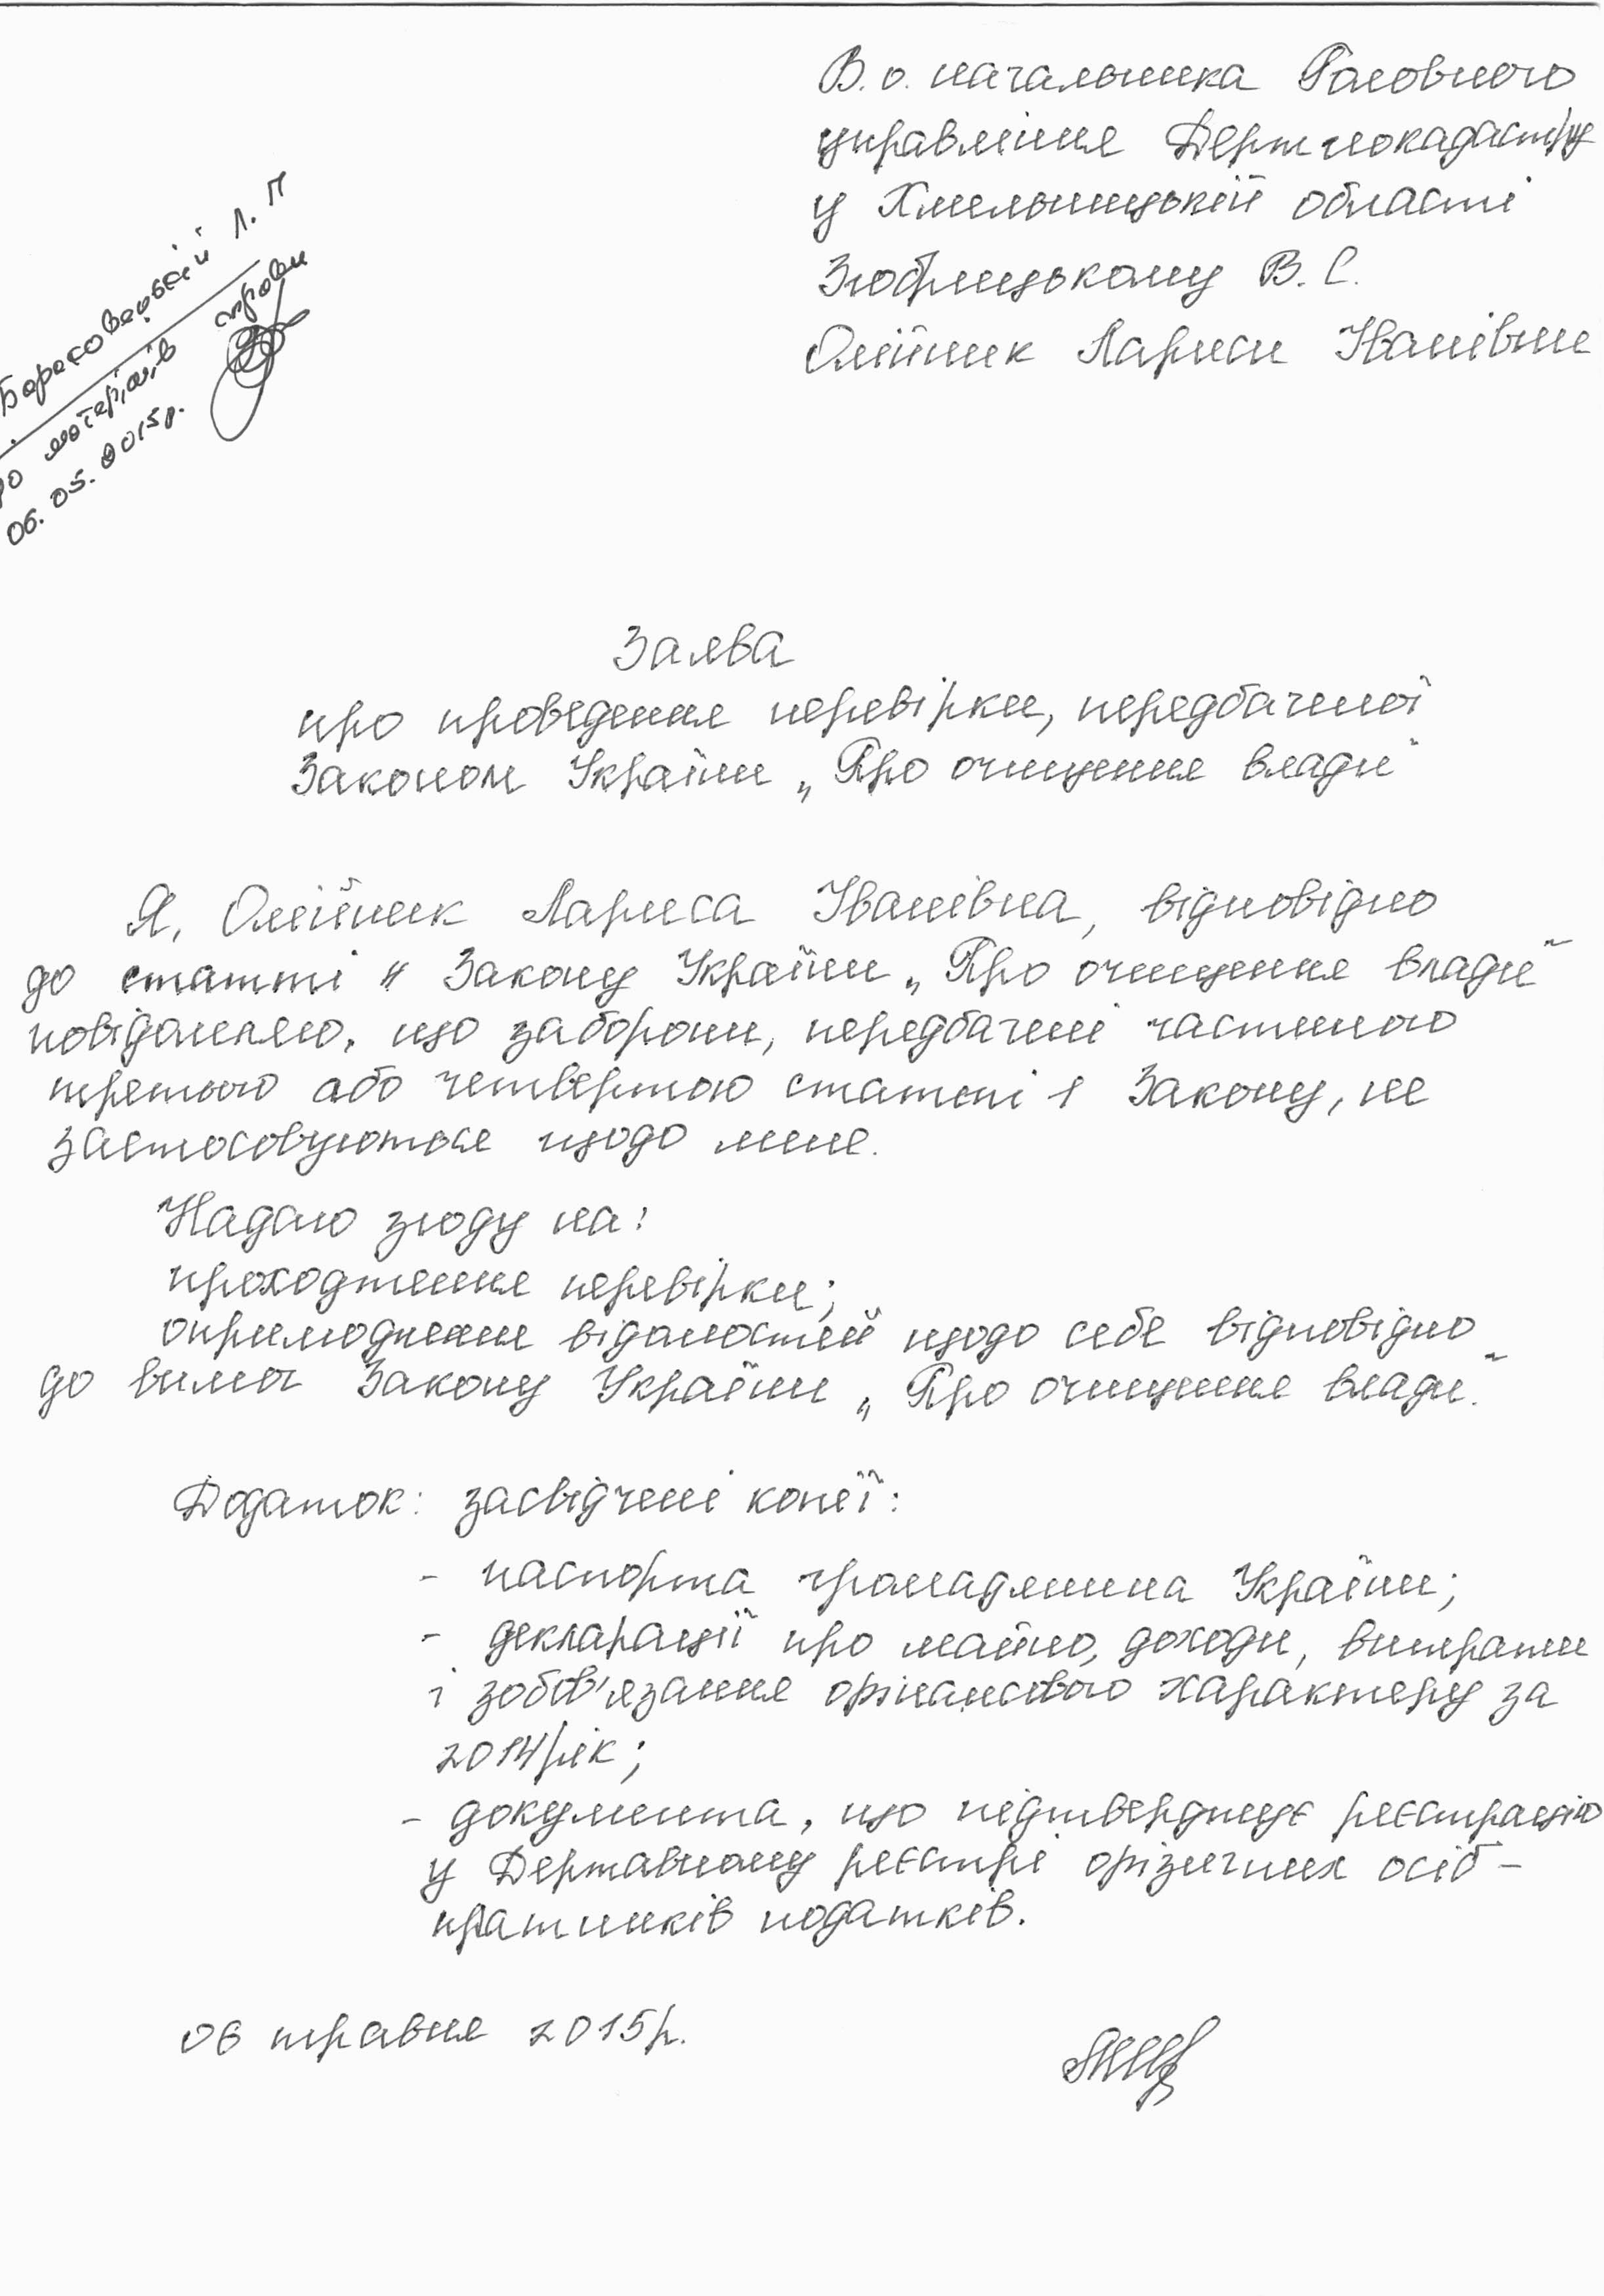 В. о. начальника Головного
управління Держгеокадастру
у Хмельницькій області
В. С.
Олійник Лариси Іванівни
Л. П
матеріалів справи
06. 05. 2015р.
Заява
про проведення перевірки, передбаченої
Законом України „Про очищення влади"
Я, Олійник Лариса Іванівна, відповідно
до статті 4 Закону України „Про очищення влади"
повідомляю, що заборони, передбачені частиною
третьою або четвертою статті 1 Закону, не
застосовуються щодо мене.
Надаю згоду на:
проходження перевірки;
оприлюднення відомостей щодо себе відповідно
до вимог Закону України „Про очищення влади".
Додаток: засвідчені копії:
- паспорта громадянина України;
- декларації про майно, доходи, витрати
і зобов'язання фінансового характеру за
2014 рік;
- документа, що підтверджує реєстрацію
у Державному реєстрі фізичних осіб -
платників податків.
06 травня 2015р.